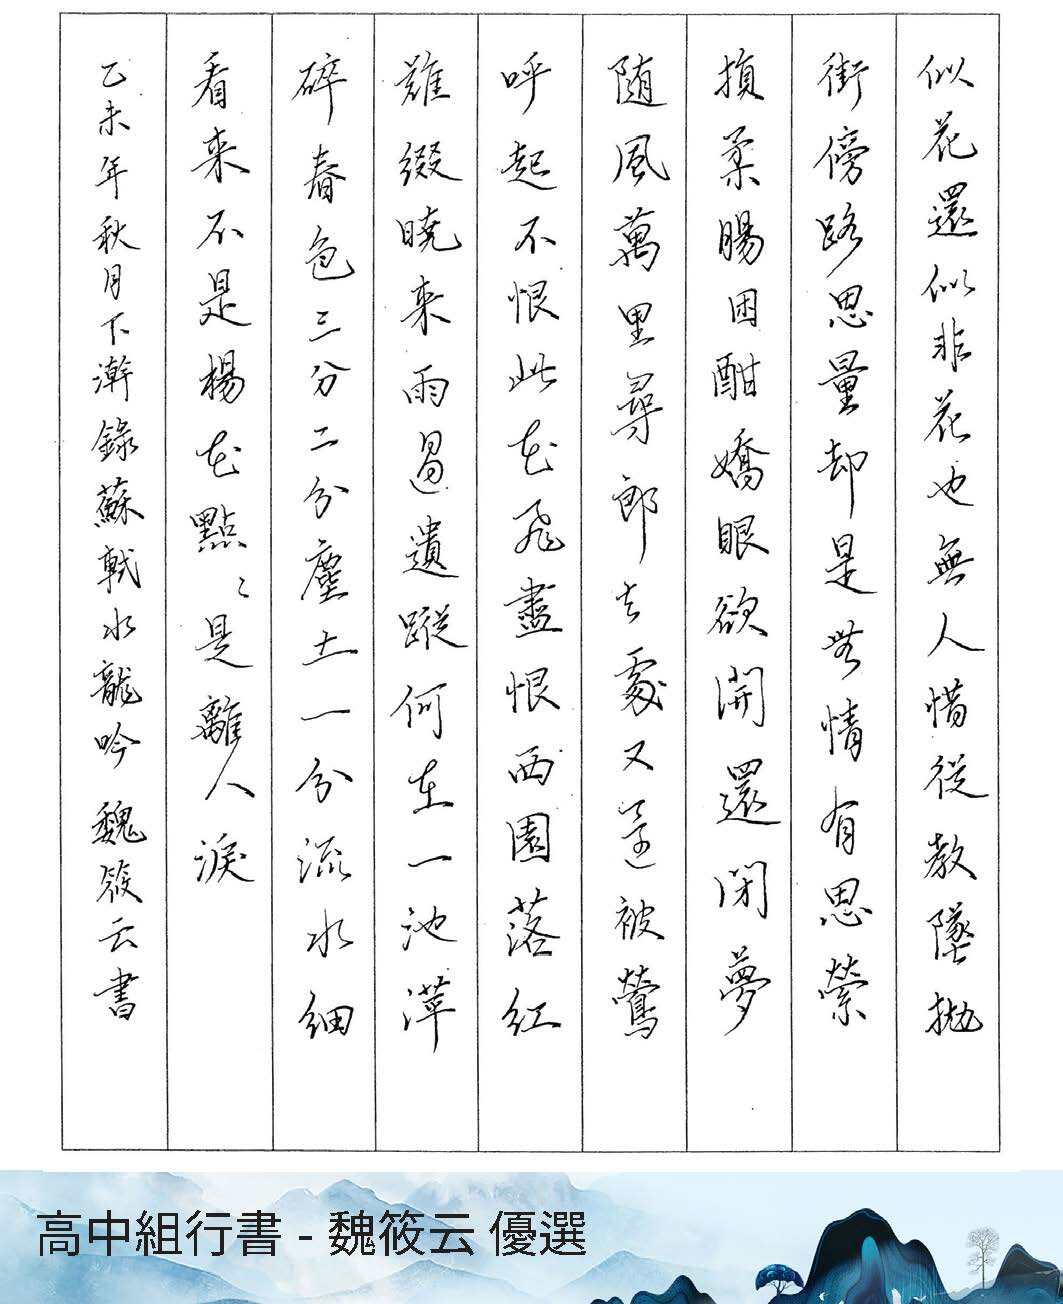 似花還似非花也無人惜從教墜拋
街傍路思量却是無情有思縈
損柔腸困酣嬌眼欲開還閉夢
随風萬里尋郎去處又還被鶯
呼起不恨此花飛盡恨西園落紅
難綴曉来雨過遺蹤何在一池萍
碎春色三分二分塵土一分流水細
看来不是楊花點々是離人淚
乙未年秋月下澣錄蘇軾水龍吟 魏筱云書
高中組行書 - 魏筱云 優選